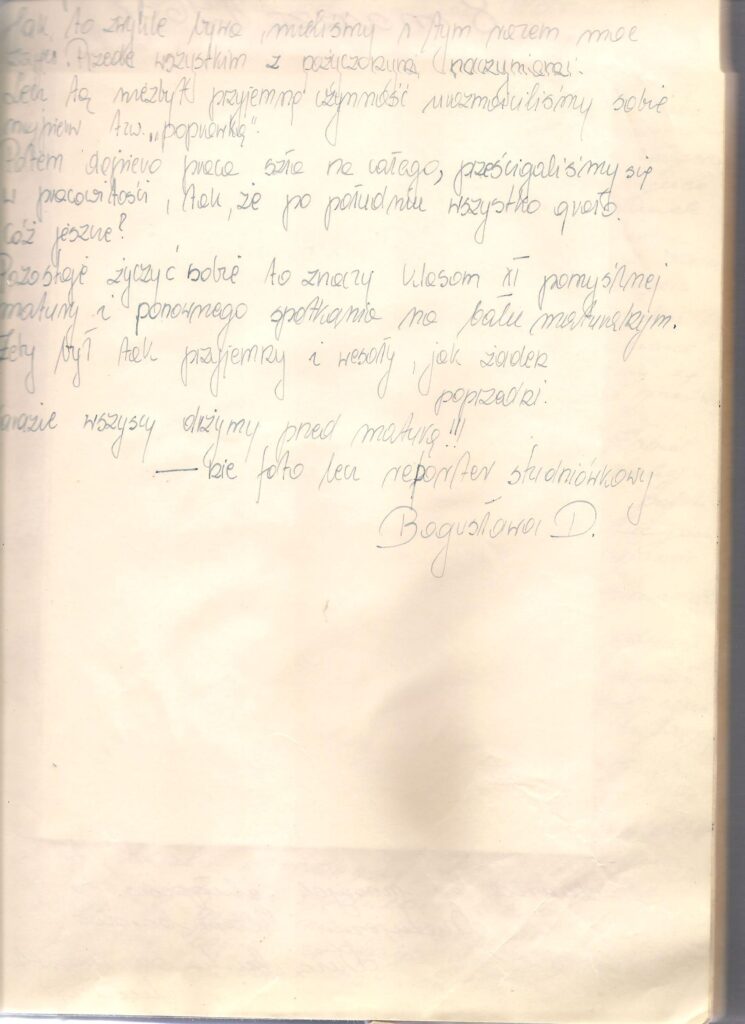 Jak to zwykle bywa, mieliśmy i tym razem moc
zajęć. Przede wszystkim z pożyczonymi naczyniami.
Lecz tą niezbyt przyjemną czynność urozmaiciliśmy sobie
najpierw tzw. „poprawką".
Potem dopiero praca szła na całego, prześcigaliśmy się
w pracowitości, tak, że po południu wszystko grało.
Cóż jeszcze?
Pozostaje życzyć sobie to znaczy klasom XI pomyślnej
matury i ponownego spotkania na balu maturalnym.
Żeby był tak przyjemny i wesoły, jak żaden
poprzedni.
Narazie wszyscy drżymy przed maturą!!!
— nie foto lecz reporter studniówkowy
Bogusława D.